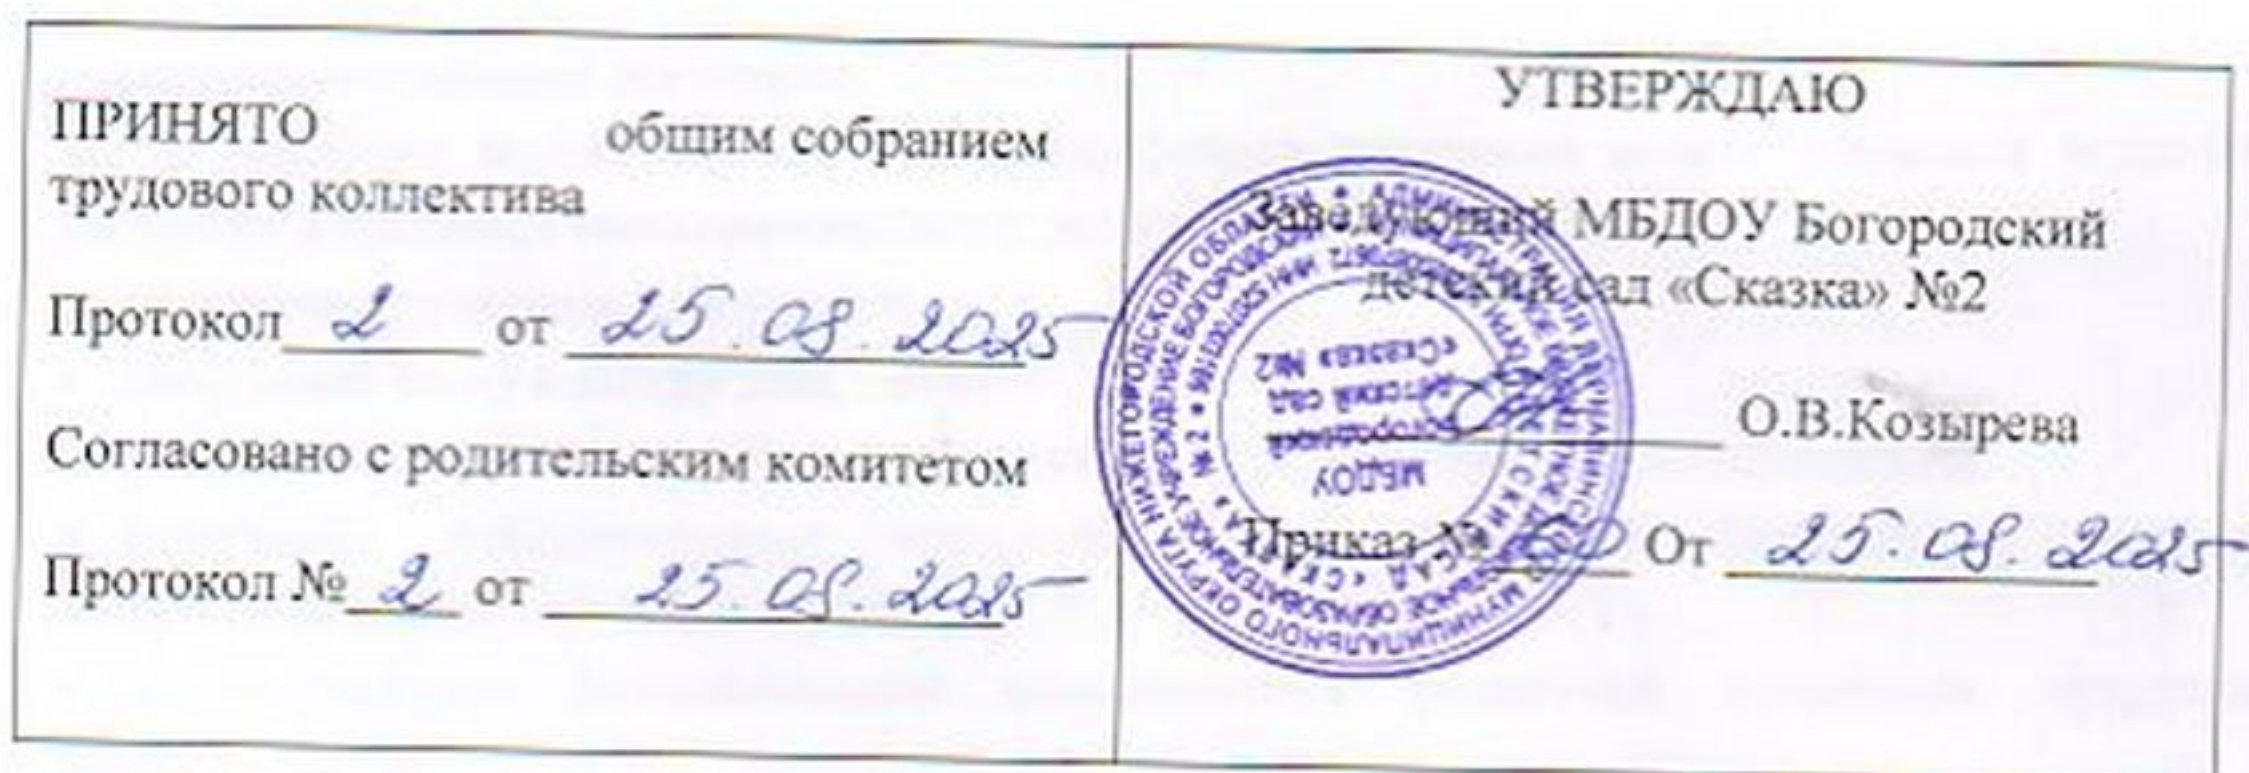 ПРИНЯТО общим собранием
трудового коллектива
Протокол 2 от 25.08.2025
Согласовано с родительским комитетом
Протокол № 2 от 25.08.2025
УТВЕРЖДАЮ
Заведующий МБДОУ Богородский
детский сад «Сказка» №2
О.В.Козырева
Приказ № 60 От 25.08.2025
МБДОУ
Богородский
детский сад
«Сказка» №2